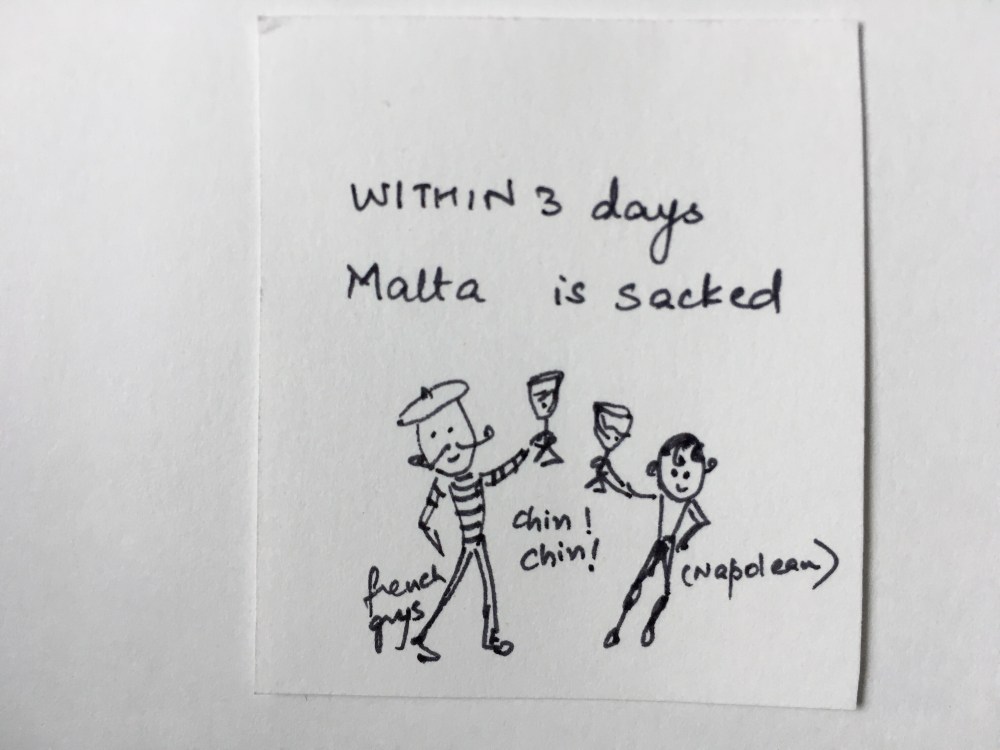 WITHIN 3 days
Malta is sacked
chin!
chin!
french
guys
(Napolean)